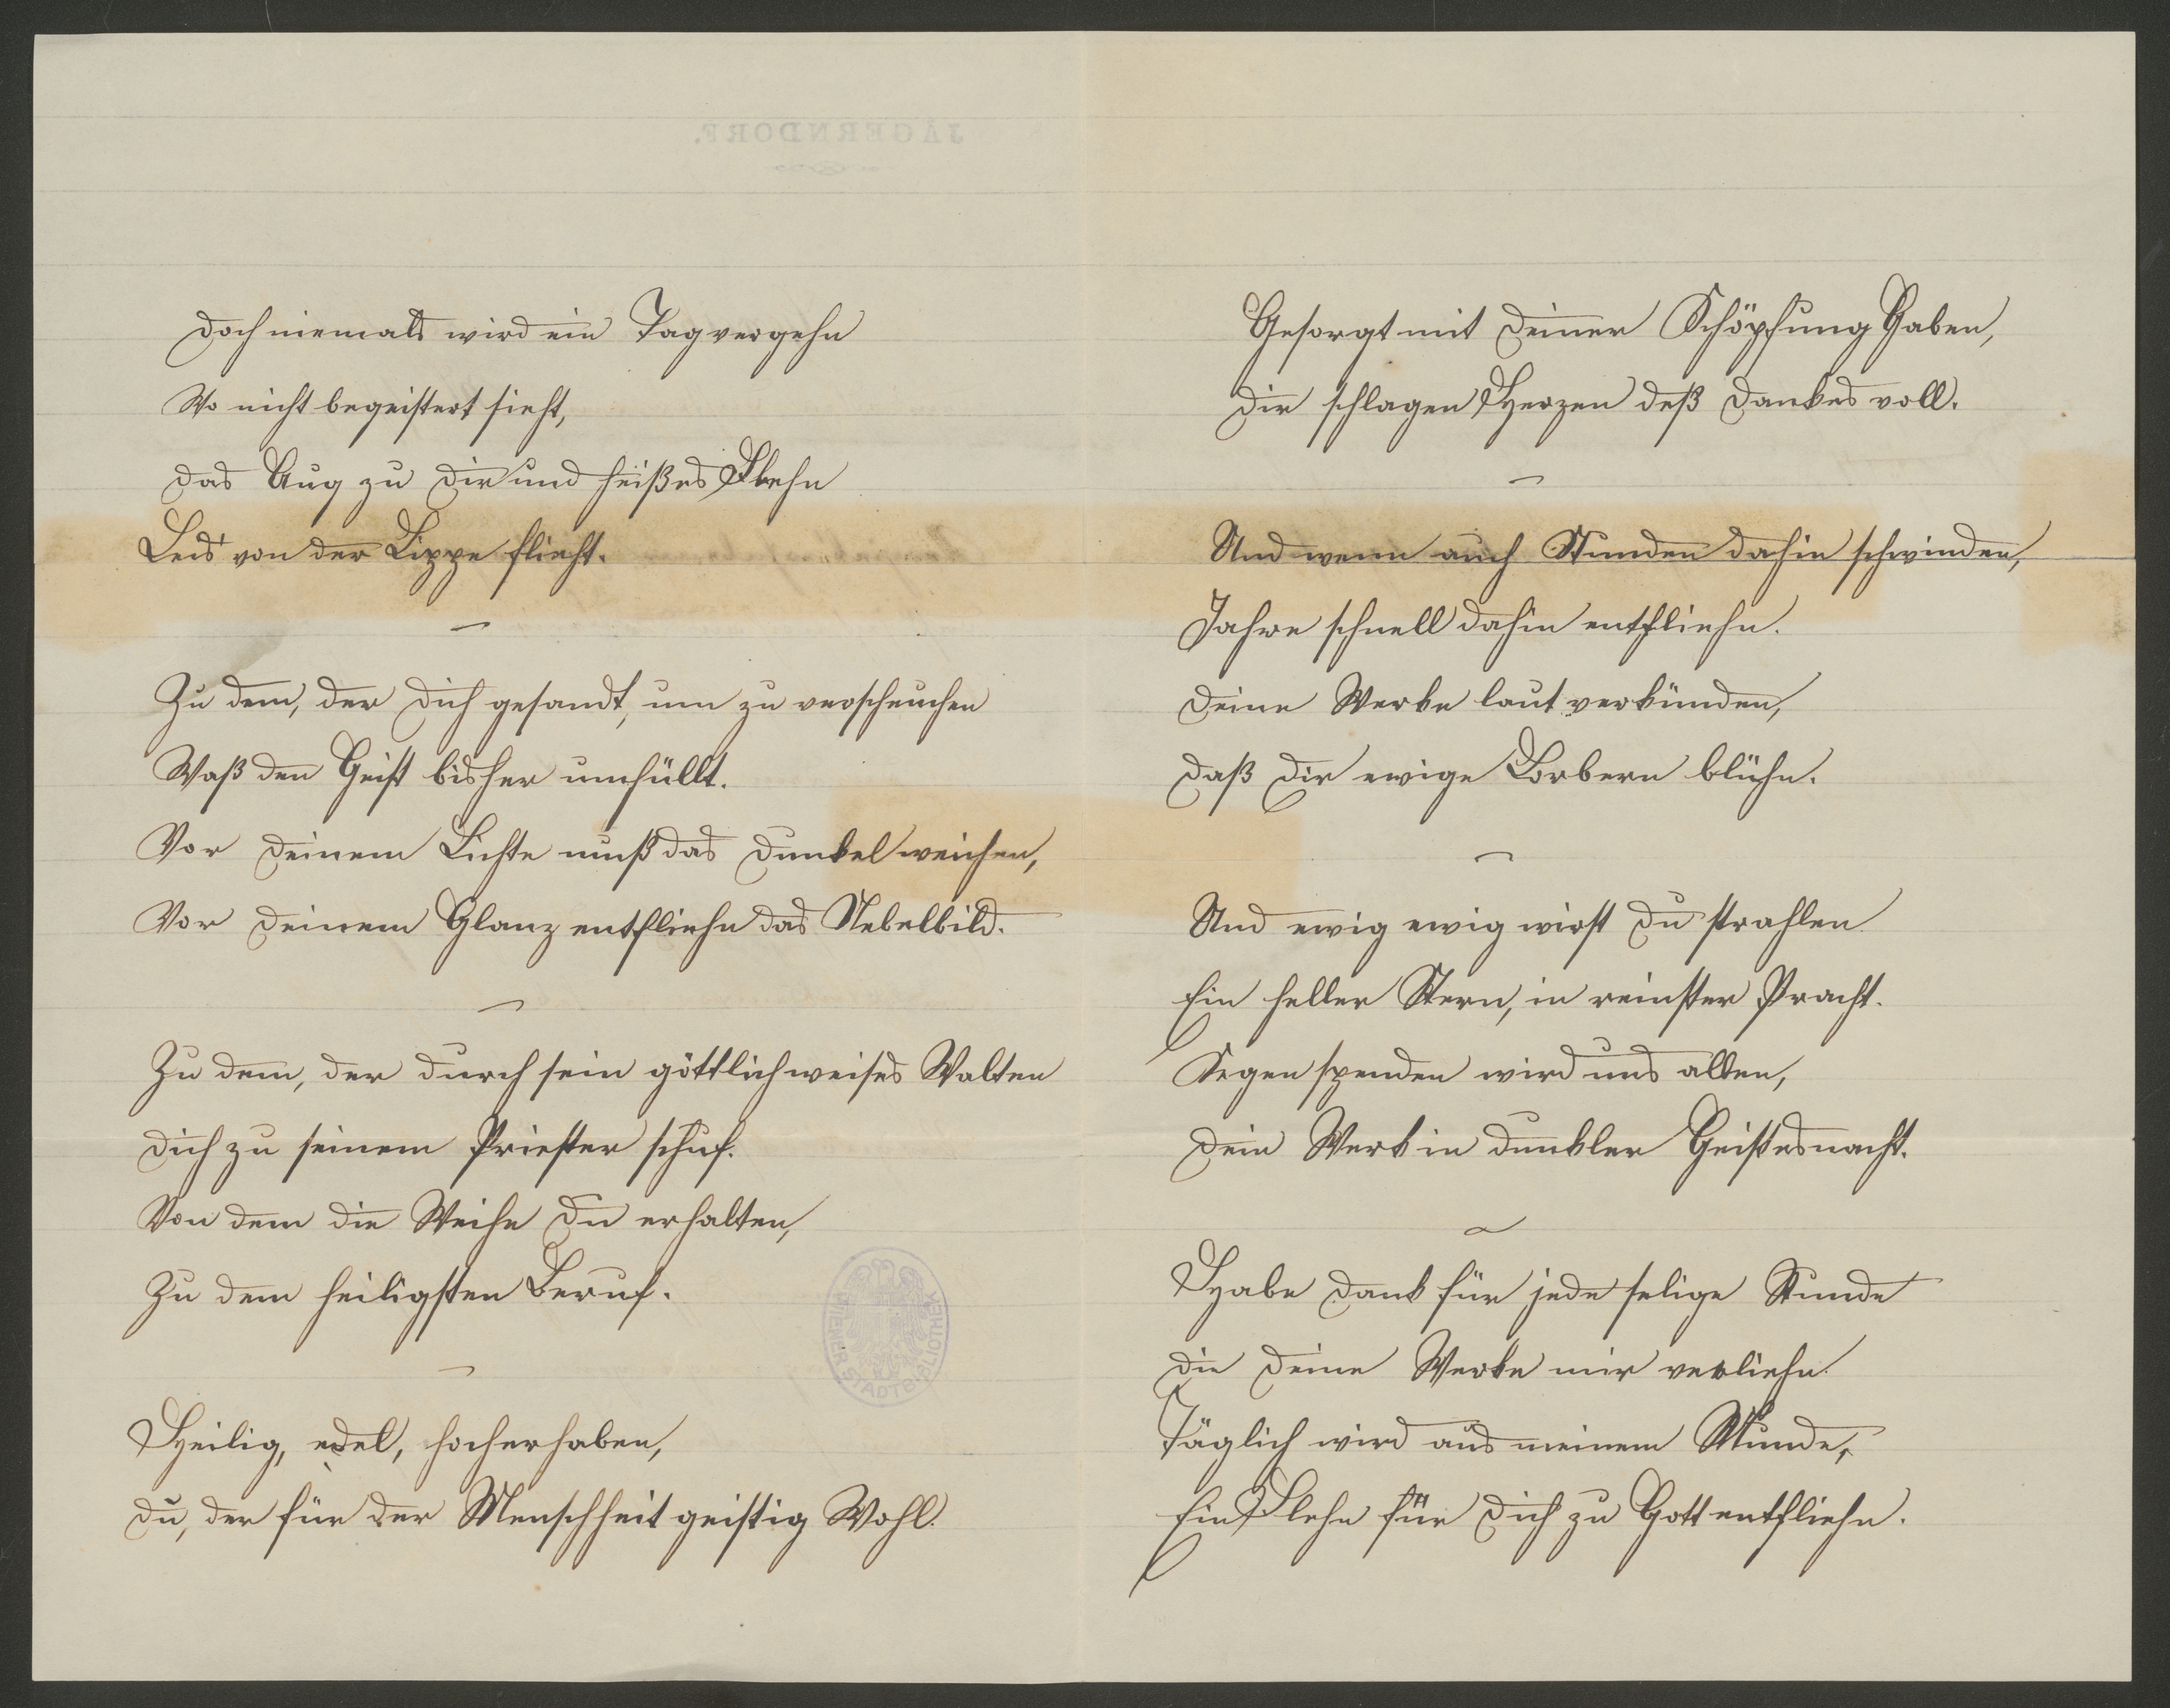 JÄGERNDORF.
Doch niemals wird ein Tag vergehn
Wo nicht begeistert sieht,
Das Aug zu Dir und heißes Flehn
Leis' von der Lippe flieht.
Zu dem, der Dich gesandt, um zu verscheuchen
Waß den Geist bisher umhüllt.
Vor Deinem Lichte muß das Dunkel weichen,
Vor Deinem Glanz entfliehn das Nebelbild.
Zu dem, der durch sein göttlich weises Walten
Dich zu seinem Priester schuf.
Von dem die Weihe Du erhalten,
Zu dem heiligsten Beruf.
Heilig, edel, hocherhaben,
Du, der für der Menschheit geistig Wohl.
WIENER STADTBIBLIOTHEK
Gesorgt mit Deiner Schöpfung Gaben,
Dir schlagen Herzen deß Dankes voll.
Und wenn auch Stunden dahin schwinden,
Jahre schnell dahin entfliehn.
Deine Werke laut verkünden,
Daß Dir ewige Lorbern blühn.
Und ewig ewig wirst Du strahlen
Ein heller Stern, in reinster Pracht.
Segen spenden wird uns allen,
Dein Werk in dunkler Geistesnacht.
Habe Dank für jede selige Stunde
Die Deine Werke mir verliehn.
Täglich wird aus meinem Munde,
Ein Flehn für Dich zu Gott entfliehn.